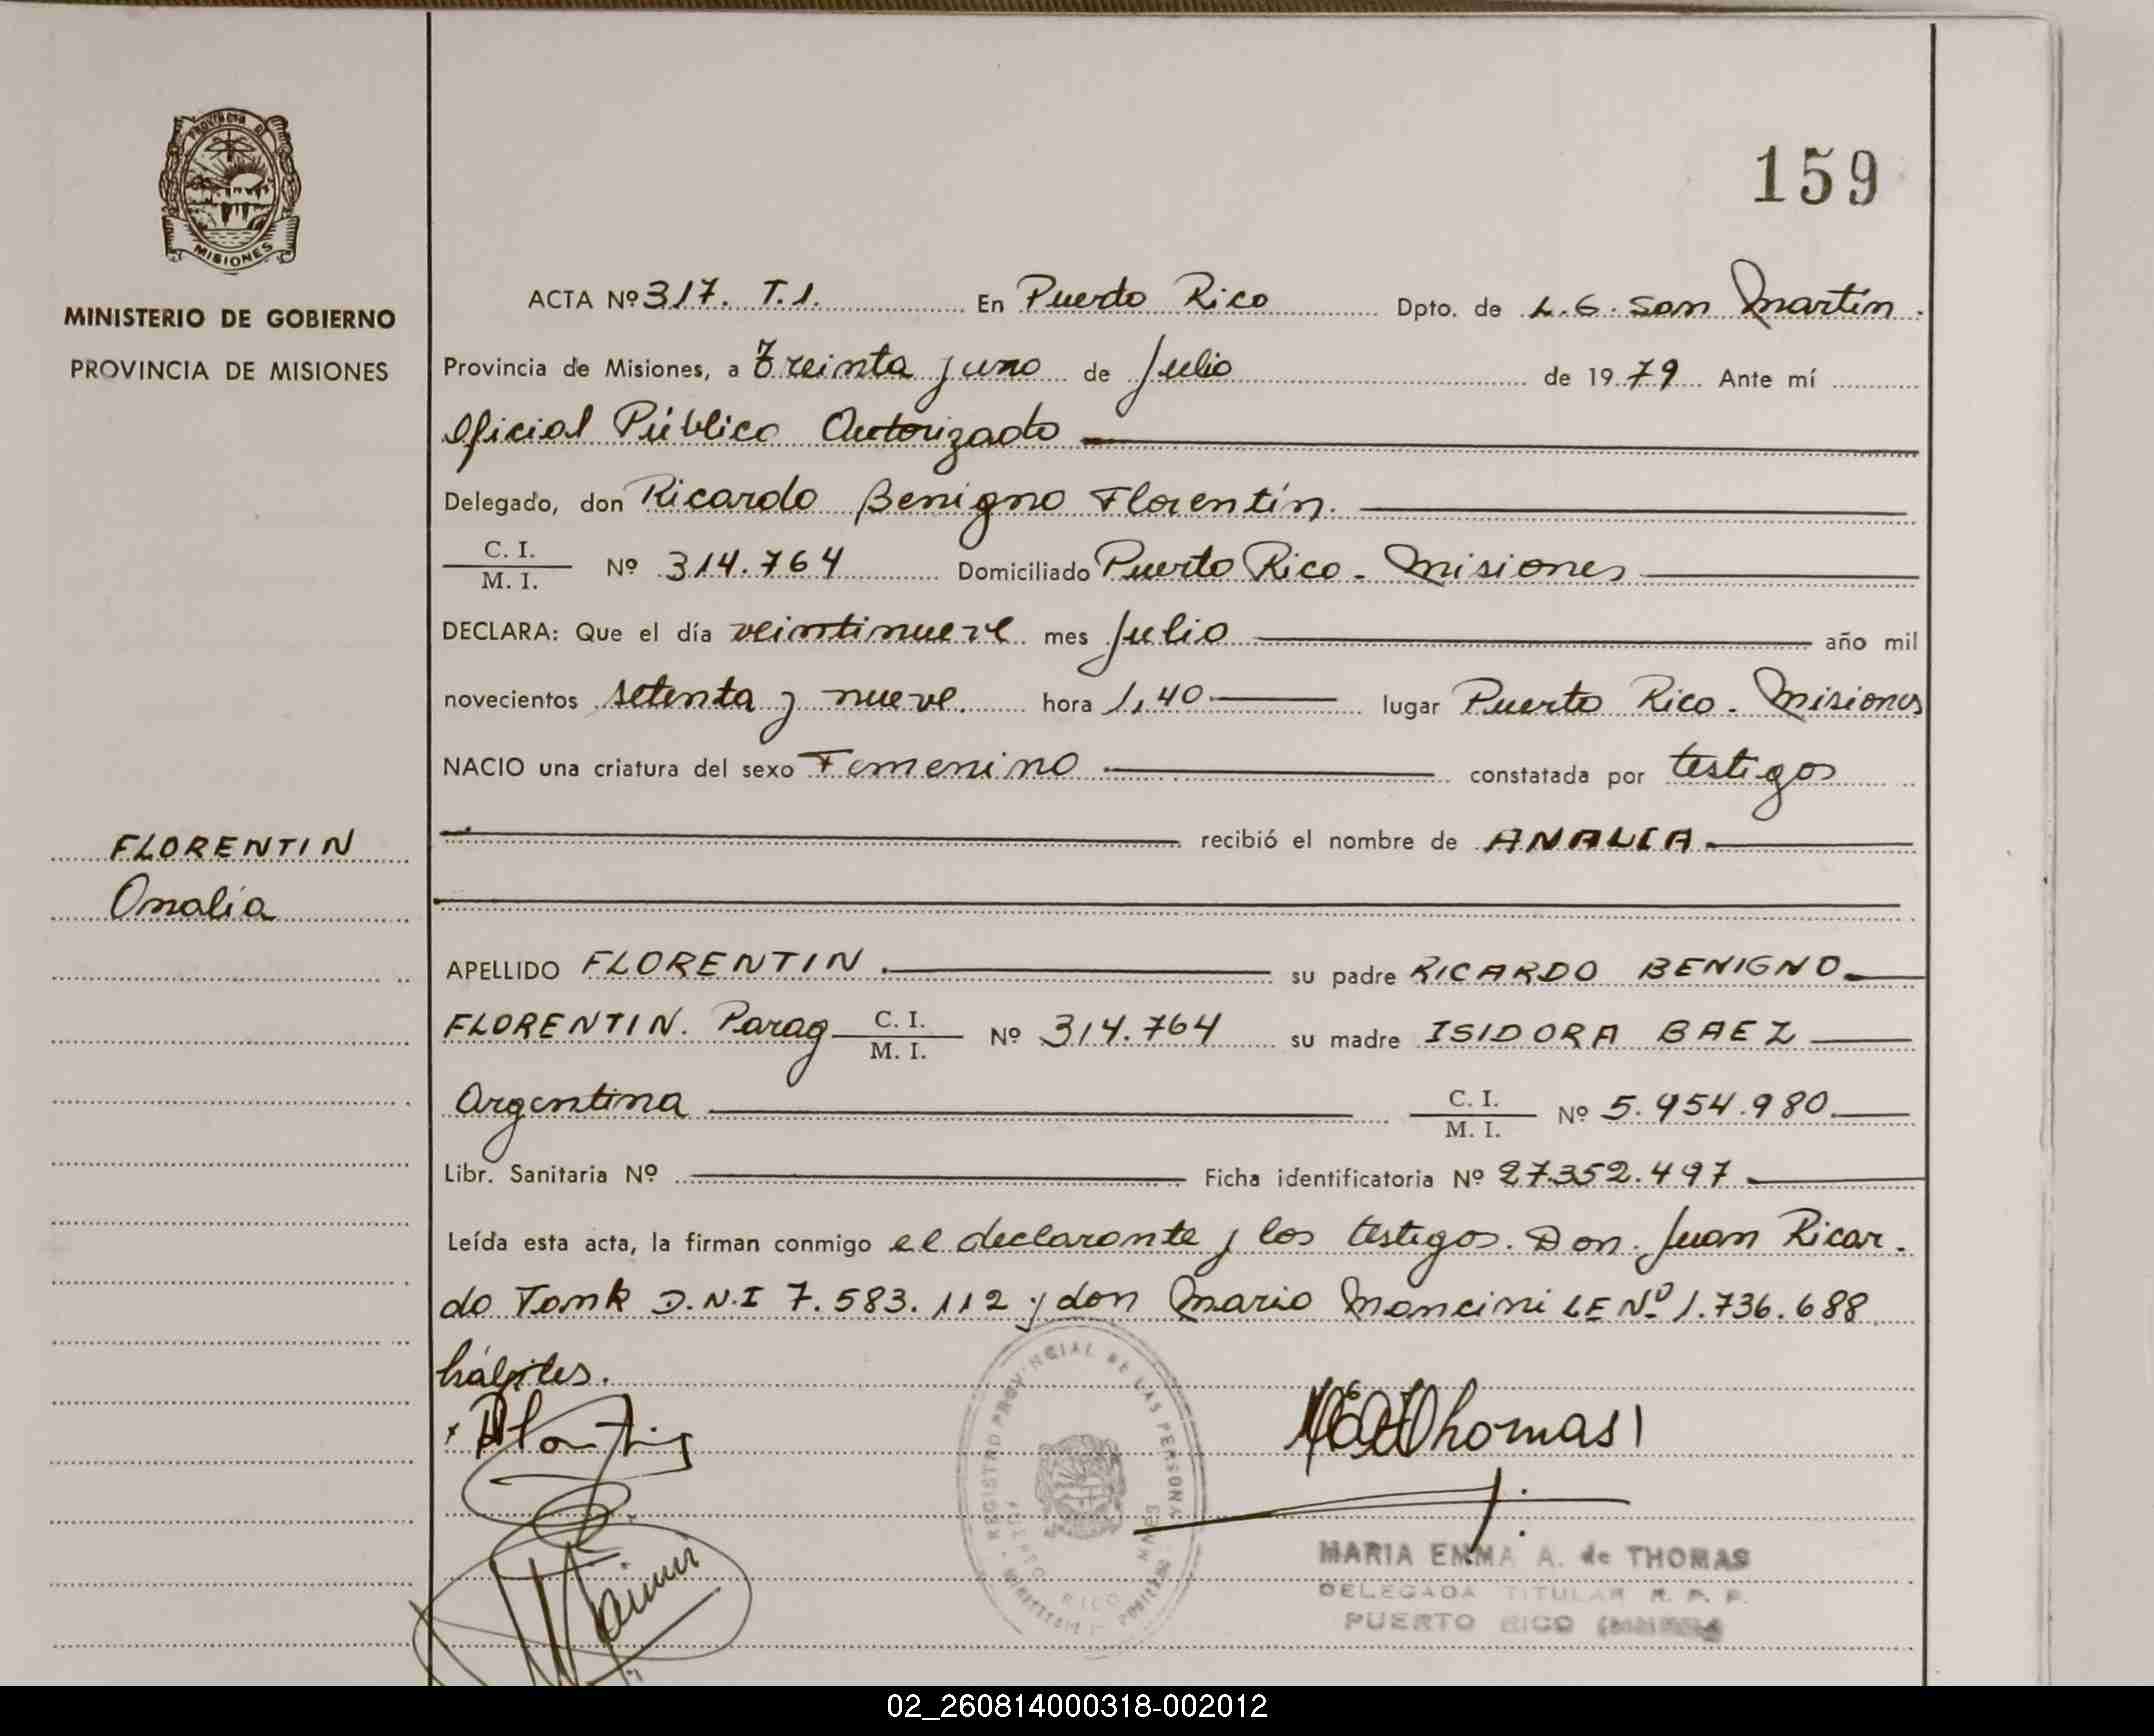 159
PROVINCIA DE
MISIONES
MINISTERIO DE GOBIERNO
PROVINCIA DE MISIONES
FLORENTIN
Analia
ACTA Nº 317. T.1. En Puerto Rico Dpto. de L.G. San Martín.
Provincia de Misiones, a Treinta y uno de Julio de 1979 Ante mí
Oficial Público Autorizado
Delegado, don Ricardo Benigno Florentín.
C. I. / M. I. Nº 314.764 Domiciliado Puerto Rico - Misiones
DECLARA: Que el día veintinueve mes Julio año mil
novecientos setenta y nueve. hora 1,40 lugar Puerto Rico - Misiones
NACIO una criatura del sexo Femenino constatada por testigos
recibió el nombre de ANALIA
APELLIDO FLORENTIN. su padre RICARDO BENIGNO
FLORENTIN. Parag C. I. / M. I. Nº 314.764 su madre ISIDORA BAEZ
Argentina C. I. / M. I. Nº 5.954.980
Libr. Sanitaria Nº Ficha identificatoria Nº 27.352.497
Leída esta acta, la firman conmigo el declarante y los testigos. Don Juan Ricar-
do Tonk D.N.I 7.583.112 y don Mario Mancini LE Nº 1.736.688
hábiles.
REGISTRO PROVINCIAL DE LAS PERSONAS
PUERTO RICO
M E A d Thomas
MARIA EMMA A. de THOMAS
DELEGADA TITULAR R. P. P.
PUERTO RICO (Misiones)
02_260814000318-002012